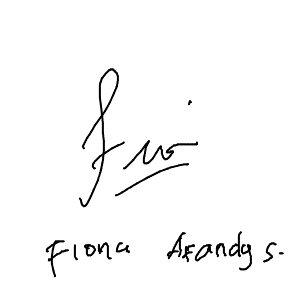 Fiona Afandy S.